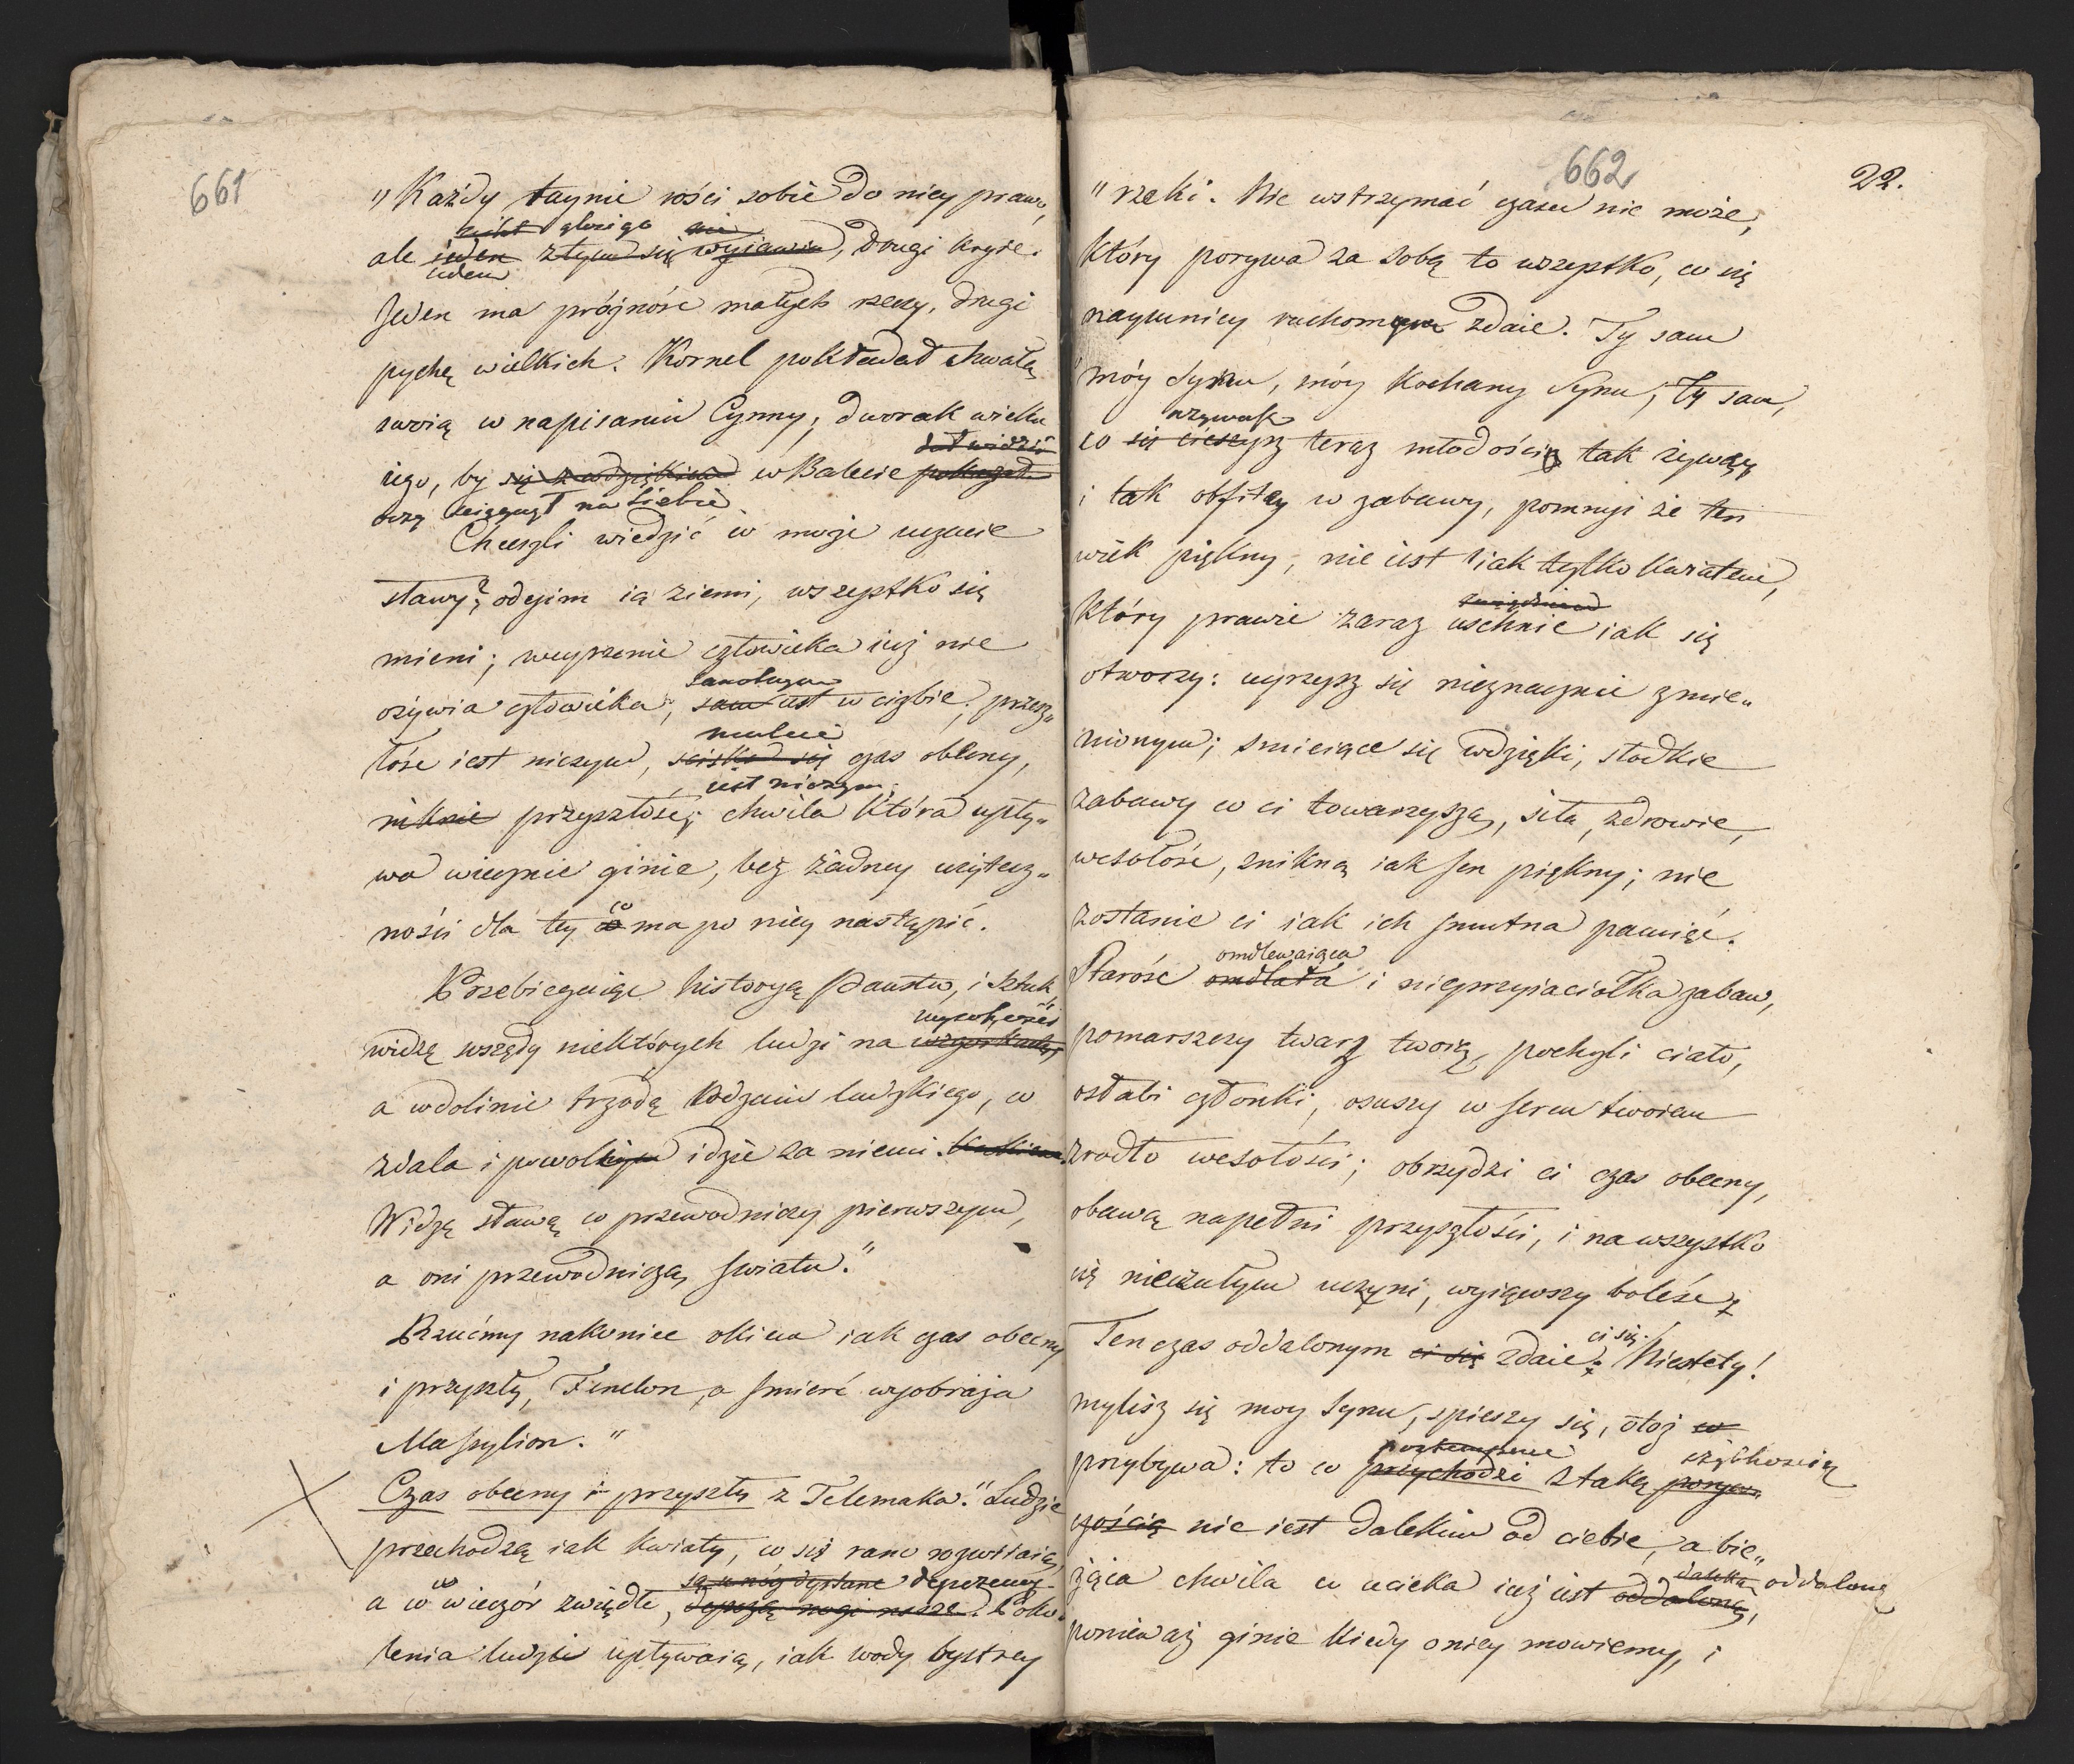 661
„Każdy taynie rości sobie do niey prawo,
nikt głośiego nie
ale ieden z tym się wyiawia, drugi kryie.
ieden
Jeden ma próżność małych rzeczy, drugi
pychę wielkich. Kornel pokładał chwałę
swoią w napisaniu Cynny, dworak wieku
iego, by się z wdziękiem w Balecie pokazał.
oczy ściągnął na siebie
Chceszli wiedzieć co może uczucie
sławy? odeyim ią ziemi, wszystko się
mieni; weyrzenie człowieka iuż nie
ożywia człowieka; sam iest w ciżbie; przesz„
łość iest niczym, ściska się czas obecny,
iest niczym;
niknie przyszłość; chwila która upły„
wa wiecznie ginie, bez żadney użytecz„
ności dla tey co ma po niey nastąpić.
Przebiegaiąc historyą Państw, i Sztuk,
wysokości
widzę wszędy niektórych ludzi na wzgórkach,
a w dolinie trzodę rodzaiu ludzkiego, co
zdala i powolnym idzie za niemi.
Widzę sławę co przewodniczy pierwszym,
a oni przewodniczą światu."
Rzućmy nakoniec okiem iak czas obecny
i przyszły, Fenelon, a śmierć wyobraża
Massylion."
Czas obecny i przyszły z Telemaka." Ludzie
przechodzą iak kwiaty, co się rano rozwiiaią,
a co wieczór zwiędłe, depczą nogi nasze. Poko„
lenia ludzi upływaią, iak wody bystrey
662
22.
„rzeki. Nic wstrzymać czasu nie może,
który porywa za sobą to wszystko, co się
naymniey ruchomym zdaie. Ty sam
móy Synu, móy kochany Synu, ty sam,
używasz
co się cieszysz teraz młodością tak żywą
i tak obfitey w zabawy, pomniy że ten
wiek piękny, nie iest iak tylko kwiatem,
który prawie zaraz uschnie iak się
otworzy: uyrzysz się nieznacznie zmie„
nionym; śmieiące się wdzięki, słodkie
zabawy co ci towarzyszą, siła, zdrowie,
wesołość, znikną iak sen piękny; nie
zostanie ci iak ich smutna pamięć.
omdlewaiąca
Starość omdlała i nieprzyiaciółka zabaw,
pomarszczy twarz twoią, pochyli ciało,
osłabi członki, osuszy w sercu twoiem
zrodło wesołości; obrzydzi ci czas obecny,
obawą napełni przyszłości, i na wszystko
cię nieczułym uczyni, wyiąwszy boleść.
ci się.
Ten czas oddalonym ci się zdaie. Niestety!
mylisz się moy Synu, spieszy się, otoż
przybywa: to co przychodzi z taką
szybkością
nie iest dalekim od ciebie, a bie„
żąca chwila co ucieka iuż iest oddaloną,
daleką oddaloną
ponieważ ginie kiedy o niey mowiemy, i